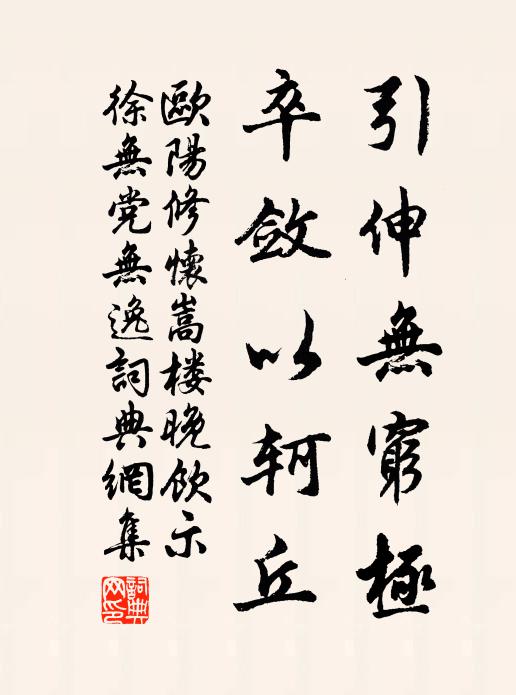 引伸無窮極
卒斂以軻丘
歐陽修懷嵩楼晚飲示
徐無党無逸詞典網集